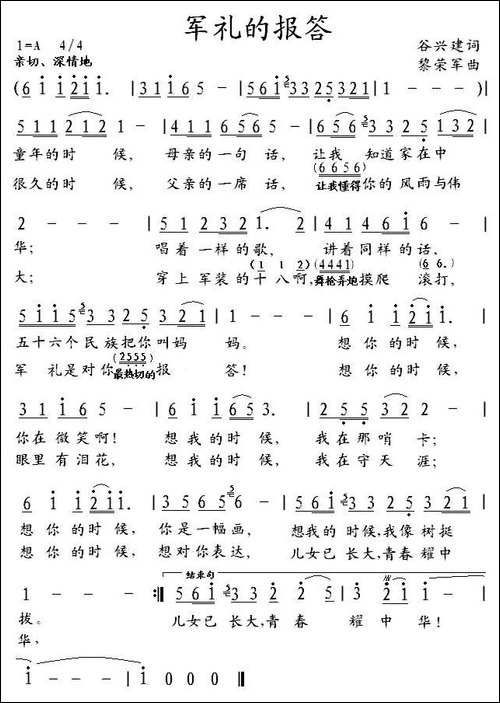 军礼的报答
1=A 4/4 谷兴建词
亲切、深情地 黎荣军曲
(6 1 1 2 1 1. | 3 1 3 1 6 5 - | 5 6 1 5 3 3 2 3 5 3 2 1 | 1 - - - )|
5 1 1 2 1 2 1 - | 4 1 1 6 5 6 5 - | 6 5 6 5 3 3 2 5 1 3 2 |
童年的时 候, 母亲的一句 话, 让我 知道家在中
(6 6 5 6)
很久的时 候, 父亲的一席 话, 让我懂得你的风雨与伟
2 - - - | 5 1 2 3 2 1. 2 | 4 1 4 6 1 6 - |
华; 唱着一样的歌, 讲着同样的话,
(1 1 2) (4 4 4 1) (6 6.)
大; 穿上军装的十八啊, 舞枪弄炮摸爬 滚打,
5 1 1 5 3 3 2 5 3 2 1 | 1 - - - | 6 1 1 2 1 1. |
五十六个民族把你叫妈 妈。 想你的时候,
(2 5 5 5)
军 礼是对你最热切的报 答! 想你的时候,
3 1 1 6 5 - | 1 6 1 1 6 5 3. | 2 5 5 3 2 2 - |
你在微笑啊! 想我的时候, 我在那哨卡;
眼里有泪花, 想我的时候, 我在守天涯;
6 1 1 2 1 1. | 3 5 6 5 6 - | 5 6 1 5 3 3 2 5 3 2 1 |
想你的时候, 你是一幅画, 想我的时候,我像树挺
想你的时候, 想对你表达, 儿女已长大,青春耀中
结束句
1 - - - :‖ 5 6 1 5 3 3 2 3 5 - | 3 2 1 1 - |
拔。 儿女已长大,青春 耀中华!
华,
1 - - - | 1 0 0 0 ‖